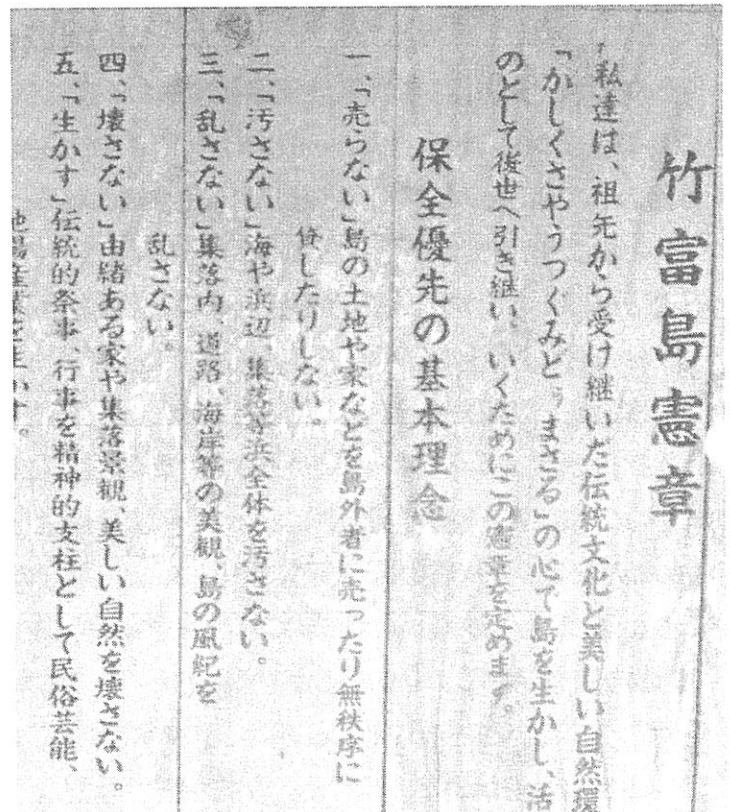 竹富島憲章
私達は、祖先から受け継いだ伝統文化と美しい自然環
「かしくさやうつぐみどぅまさる」の心で島を生かし、活
のとして後世へ引き継いでいくためにこの憲章を定めます。
保全優先の基本理念
一、「売らない」島の土地や家などを島外者に売ったり無秩序に
したりしない。
二、「汚さない」海や浜辺、集落等島全体を汚さない。
三、「乱さない」集落内、道路、海岸等の美観、島の風紀を
乱さない。
四、「壊さない」由緒ある家や集落景観、美しい自然を壊さない。
五、「生かす」伝統的祭事、行事を精神的支柱として民俗芸能、
地場産業を生かす。